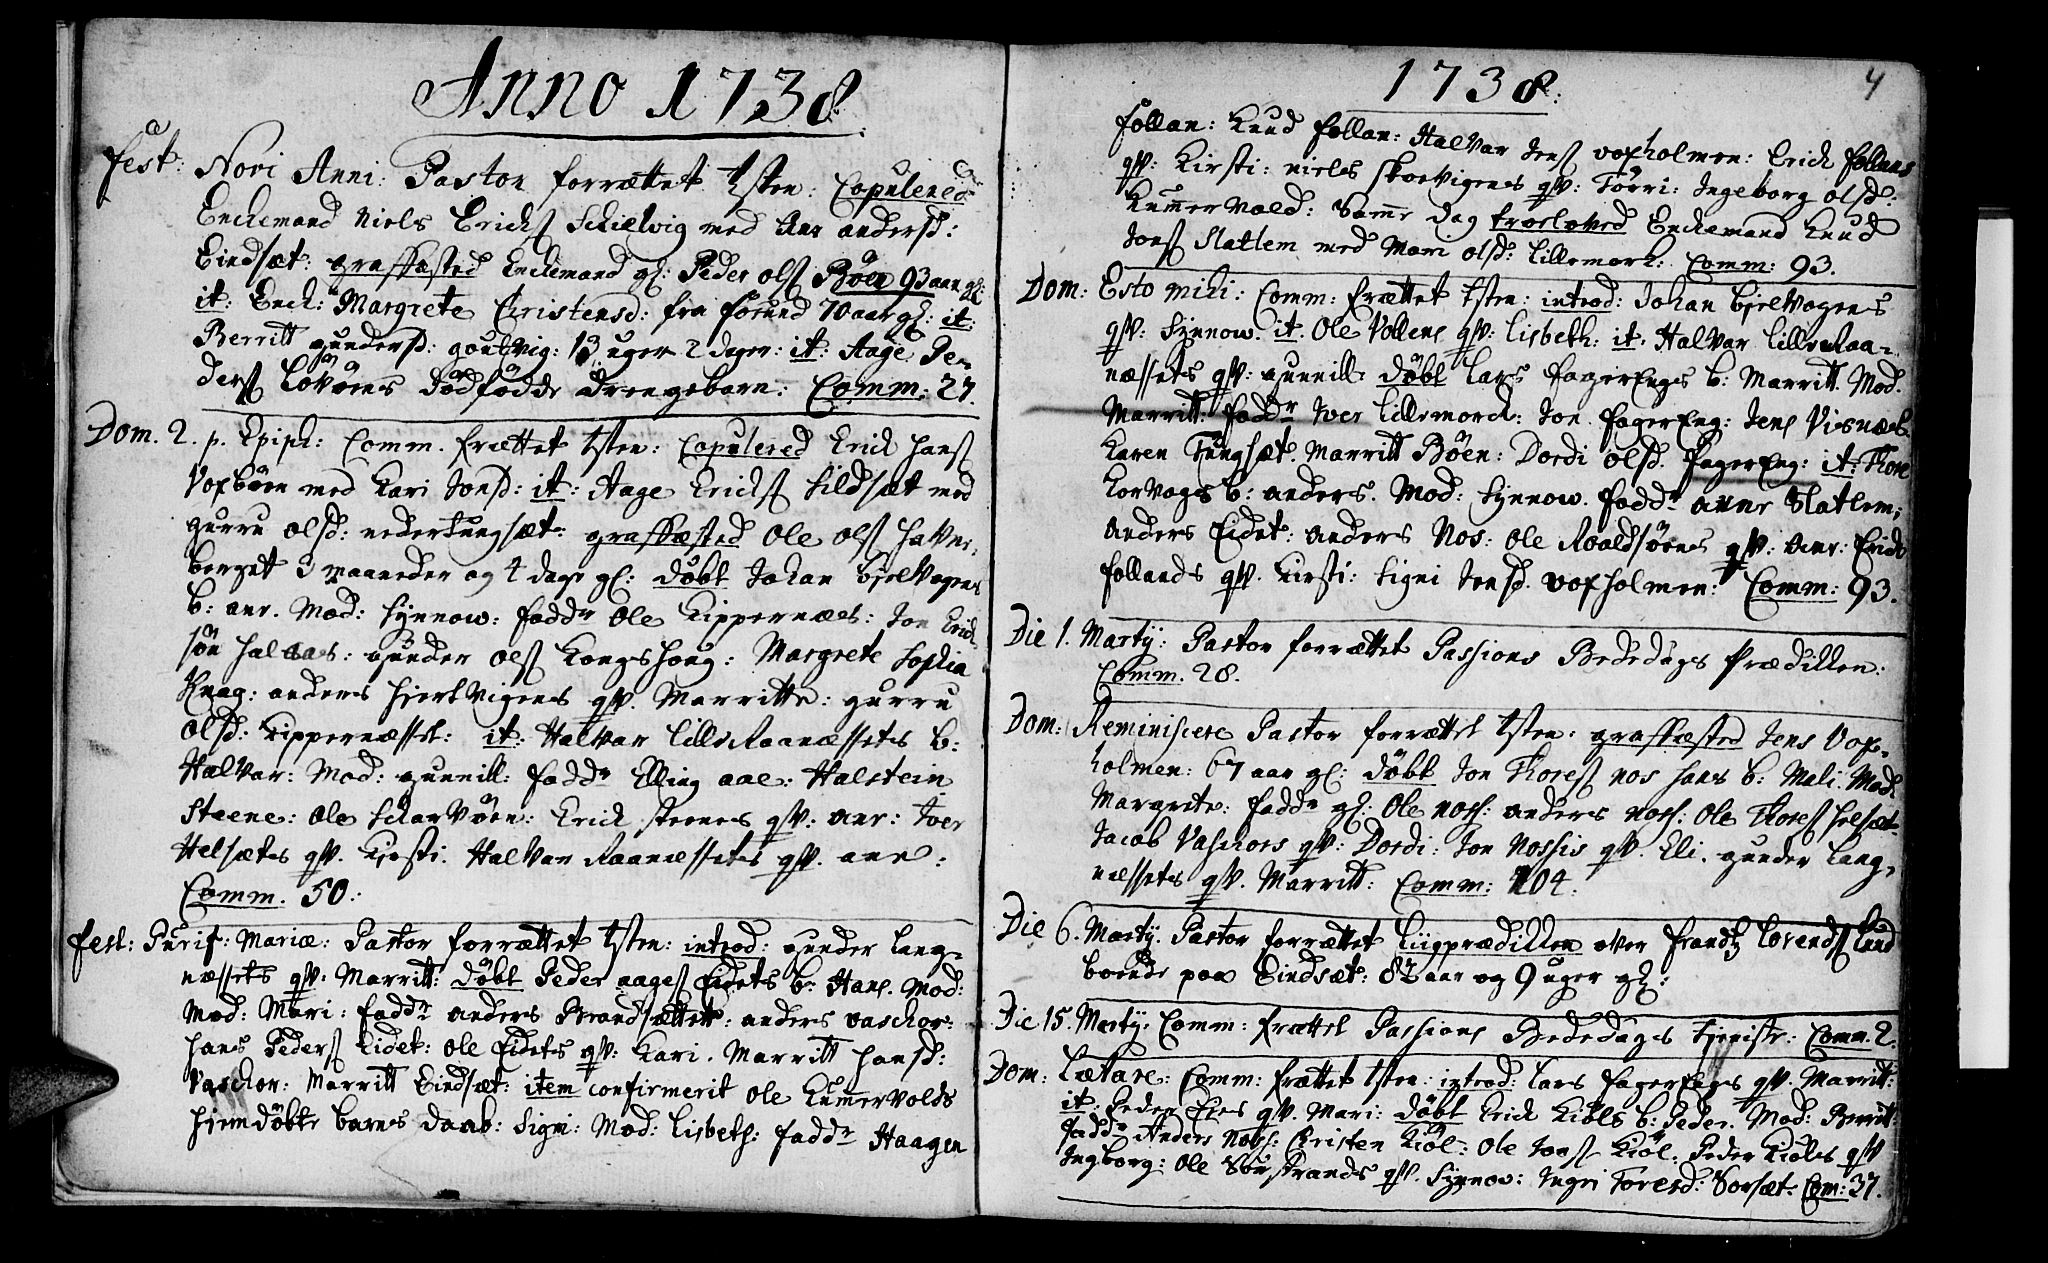 Anno 1738.
Fest: Novi Anni: Pastor forrættet tisten: Copulered
Enckemand Niels Erichs Schielvig med Ane andersd:
Eindsæt: graffæsted Enckemand gl: Peder ols Böen 93 aar gl:
it: Enck: Margrete Christensd: fra Forund 70 aar gl: it:
Berritt gundersd: goutvig: 13 uger 2 dager: it: Aage Pe-
ders Lövöens dödfödde drengebarn: Comm: 27.
Dom. 2. p. Epiph: Comm. frættet tisten: Copulered Erich Hans
Voxböen med Kari Jonsd: it: Aage Erichs Sildsæt med
gurru olsd: nedertungsæt: graffæsted Ole ols Havne,
berget 3 maaneder og 4 dage gl: döbt Johan bielvogens
b: anr. Mod: Synnow: fadd. Ole Kippernæs: Jon Erich
sön Halaas: gunder ols Kongshoug: Margrete Sophia
Knag: anders Hiertvigens qv. Marritte: gurru
olsd: Kippernæsset: it: Halvar Lille Raanæssets b:
Halvar: Mod: gunnill: fadd. Elling aae: Halstein
Steene: Ole Skarvöen: Erich steenes qv: anr: Iver
Helsæts qv. Kirsti. Halvar Raanæssets qv. ane:
Comm. 50:
Fest: Purif: Mariæ: Pastor forrættet tisten: introd: gunder Lang-
næssets qv: Marritt: döbt Peder aages Eidets b: Hans. Mod:
Mod: Mari: fadd. anders Brandsættet: anders vaschor:
Hans Peders Eidet: Ole Eidets qv: Kari. Marritt Hansd:
Vaschor: Marritt Eindsæt: item confirmerit Ole Kummervolds
Hjemdöbte barns daab: Signi: Mod: Lisbeth: fadd. Haagen
1738. 4
Follan: Knud Follan: Halvar Jens voxholmen: Erich follans
qv: Kirsti: niels skoevigens qv: Törri: Ingeborg olsd:
Kummervold: Samme dag troeloved Enckemand Knud
Jons Slatlem med Mari olsd: Lillemork: Comm: 93.
Dom: Esto mihi: Comm: frættet tisten: introd: Johan bielvogens
qv: Synnow. it. Ole Vollens qv: Lisbeth: it. Halvar Lille Raa-
næssets qv: gunnill: döbt Lars FagerEngs b: Marritt. Mod:
Marritt: fadd. Iver Lillemorck: Jon. fagerEng: Jens Visnæs
Karen Tungsæt. Marritt Böen: Dordi olsd. FagerEng: it: Thore
Korvogs b: anders. Mod: Synnow. fadd. anne Slatlem;
anders Eidet: anders Nos: Ole Roaldsöens qv: anr: Erich
follands qv. Kirsti: Signi Jensd. voxholmen: Comm: 93.
Die 1. Martij: Pastor forrættet Passions Bededags Prædikken:
Comm. 28.
Dom: Reminiscere Pastor forrættet tisten: graffæsted Jens Vox-
holmen: 67 aar gl: döbt Jon Thores nos hans b: Mali: Mod:
Margrete: fadd. gl: Ole nos: anders nos: Ole Thores Helsæt
Jacob Vaschors qv: Dordi: Jon Nossis qv. Eli. gunder Lang,
næssets qv. Marritt: Comm: 104.
Die 6. Martij. Pastor forrættet Liigprædikken over Frandtz Lorends Lund
boende paa Eindsæt: 82 aar og 9 uger gl:
Die 15. Martij. Comm: frættet Passions Bededags tjeniste: Comm. 2.
Dom: Lætare: Comm: frættet tisten: introd: Lars fagerEngs qv. Marritt:
it. Peder Eies qv. Mari: döbt Erich Kiöls b: Peder. Mod: Berrit:
fadd. Anders Nos: Christen Kiöl: Ole Jons Kiöl: Peder Kiöls qv
Ingborg: Ole Sörstrands qv. Synnow: Ingri Toresd: Sorsæt. Com: 37.